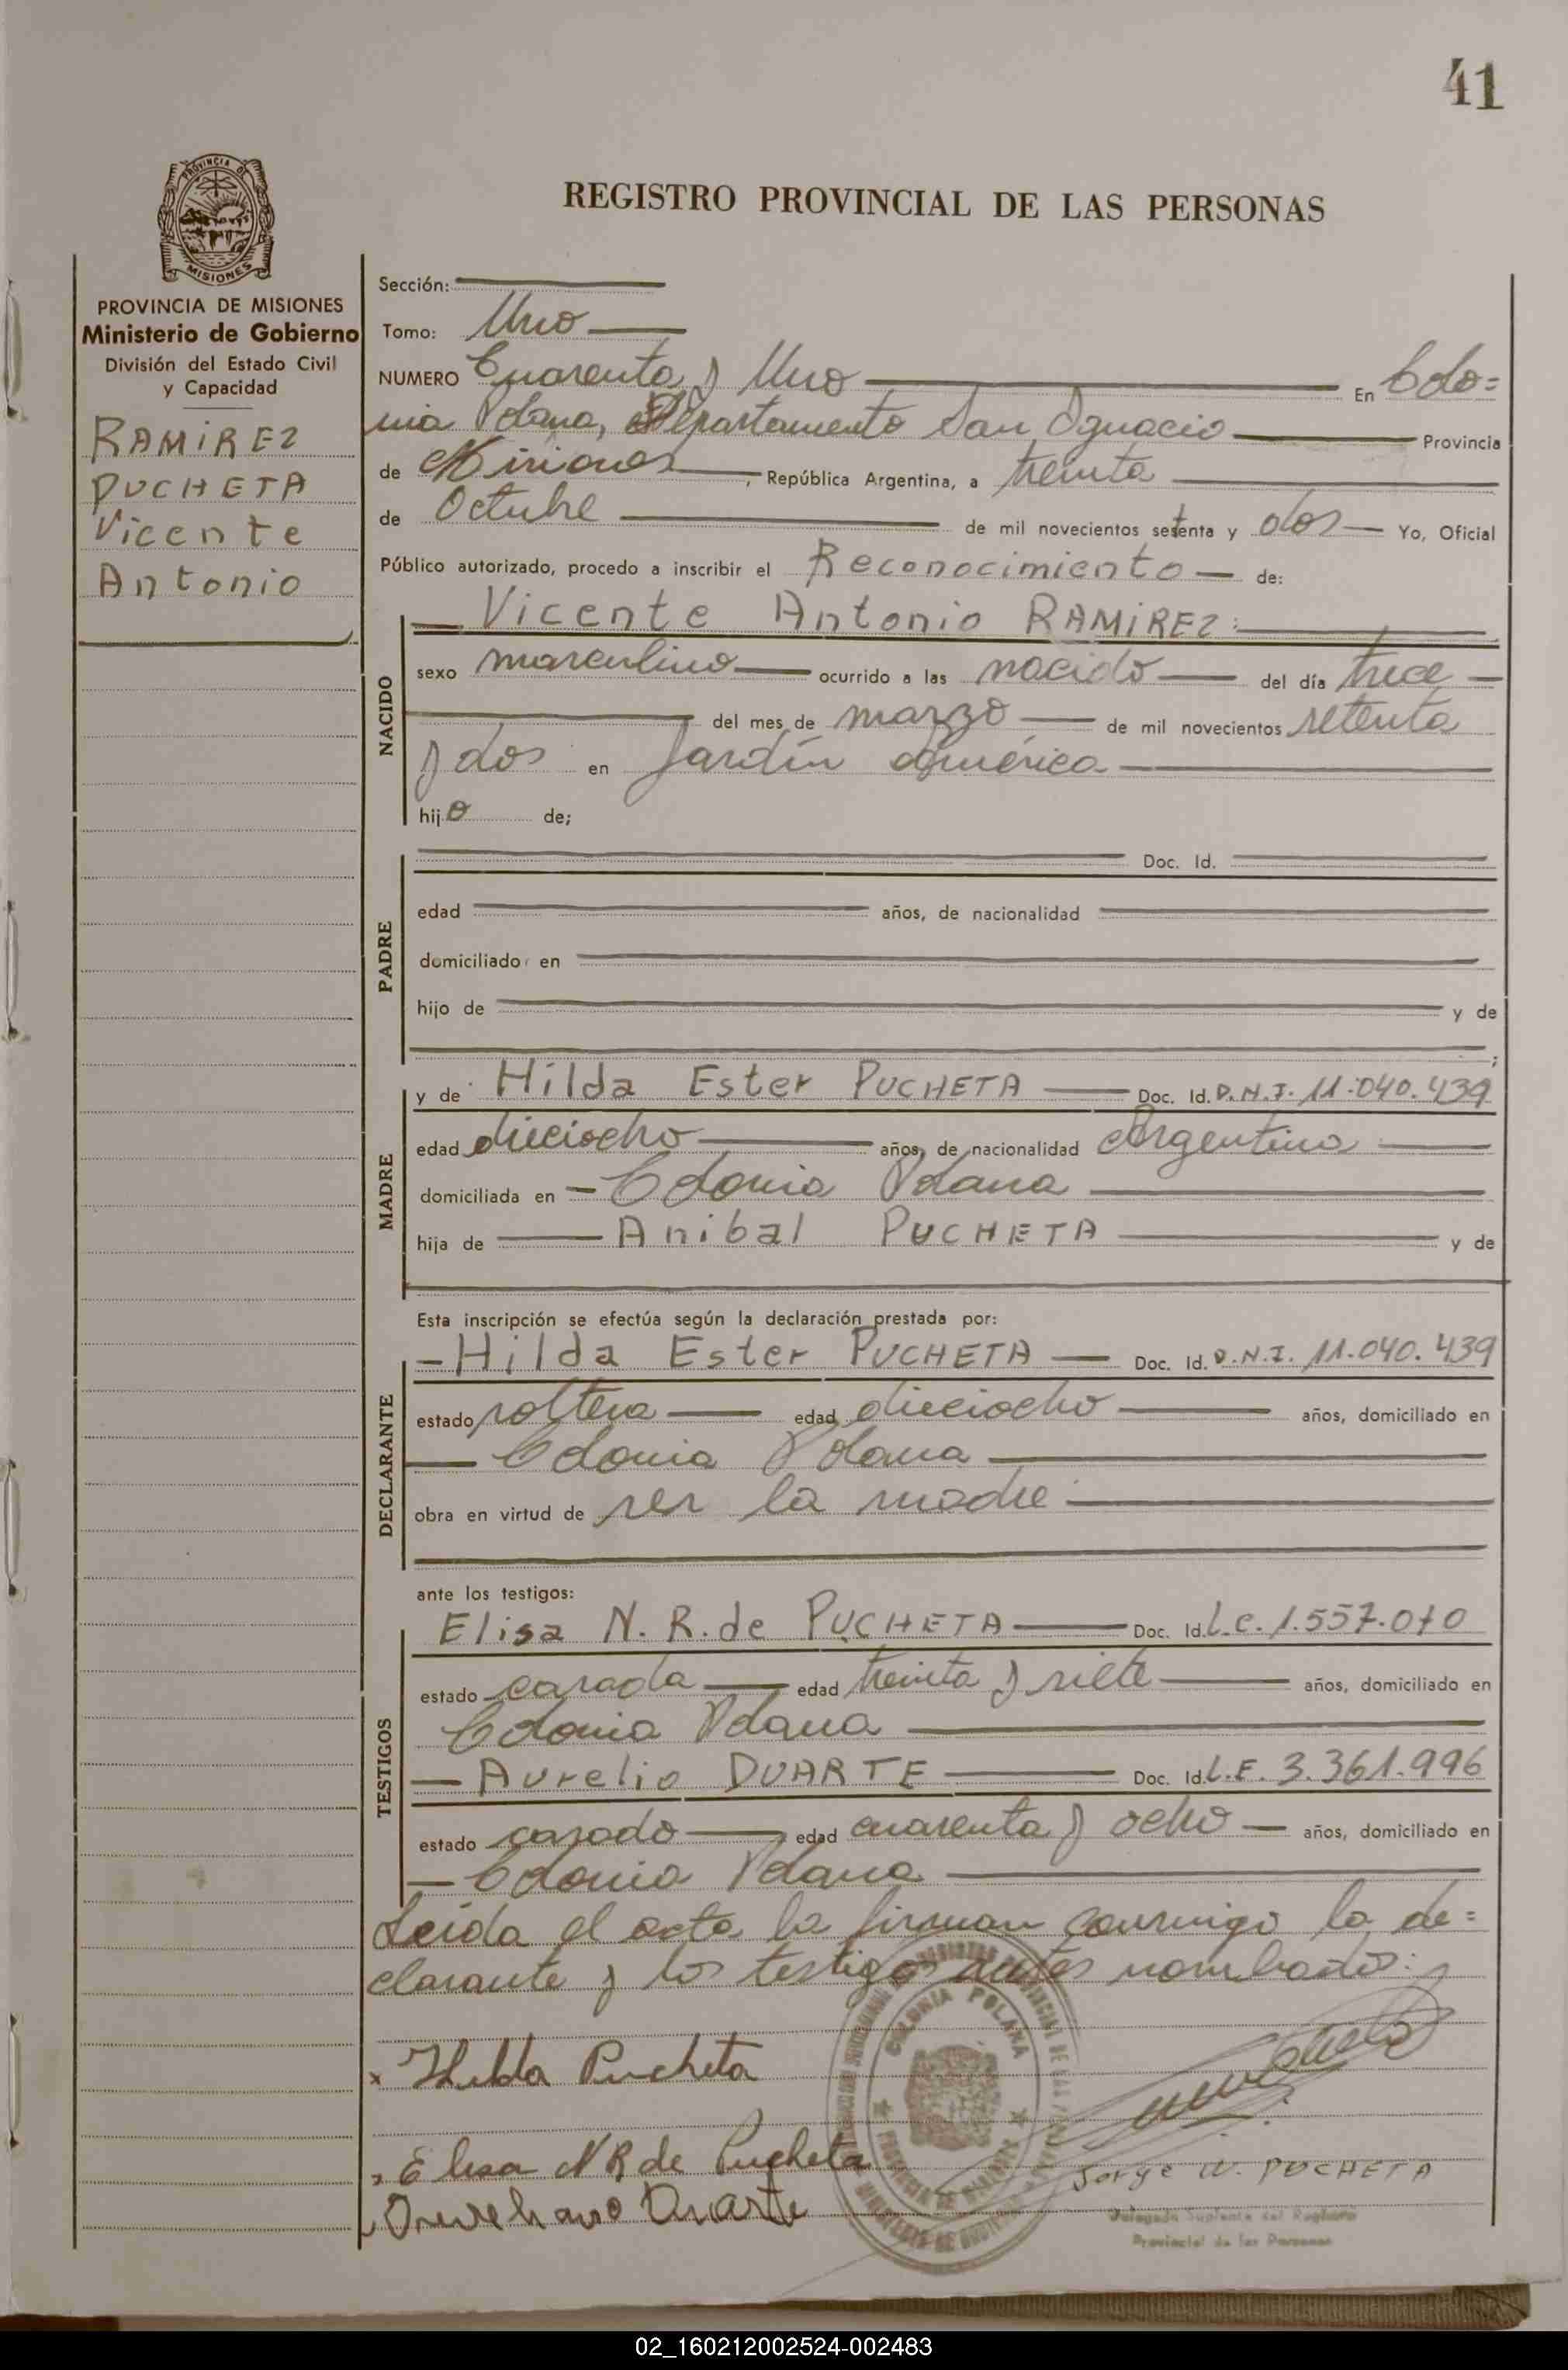 41
PROVINCIA DE
MISIONES
REGISTRO PROVINCIAL DE LAS PERSONAS
PROVINCIA DE MISIONES
Ministerio de Gobierno
División del Estado Civil
y Capacidad
RAMIREZ
PUCHETA
Vicente
Antonio
Sección:
Tomo: Uno
NUMERO Cuarenta y Uno En Colo=
nia Polana, Departamento San Ignacio Provincia
de Misiones, República Argentina, a treinta
de Octubre de mil novecientos setenta y dos Yo, Oficial
Público autorizado, procedo a inscribir el Reconocimiento de:
NACIDO
Vicente Antonio RAMIREZ:
sexo masculino ocurrido a las nacido del día trece
del mes de marzo de mil novecientos setenta
y dos en Jardín América
hijo de;
PADRE
Doc. Id.
edad años, de nacionalidad
domiciliado en
hijo de y de
;
MADRE
y de Hilda Ester PUCHETA Doc. Id. D.N.I. 11.040.439
edad dieciocho años, de nacionalidad Argentina
domiciliada en - Colonia Polana
hija de Anibal PUCHETA y de
Esta inscripción se efectúa según la declaración prestada por:
DECLARANTE
- Hilda Ester PUCHETA Doc. Id. D.N.I. 11.040.439
estado soltera edad dieciocho años, domiciliado en
Colonia Polana
obra en virtud de ser la madre
ante los testigos:
TESTIGOS
Elisa N. R. de PUCHETA Doc. Id. L.C. 1.557.070
estado casada edad treinta y siete años, domiciliado en
Colonia Polana
Aurelio DUARTE Doc. Id. L.E. 3.361.996
estado casado edad cuarenta y ocho años, domiciliado en
Colonia Polana
Leída el acta la firman conmigo la de=
clarante y los testigos antes nombrados:
COLONIA POLANA
x Hilda Pucheta
x Elisa N R de Pucheta
Duarte
Jorge W. PUCHETA
Delegado Suplente del Registro
Provincial de las Personas
02_160212002524-002483